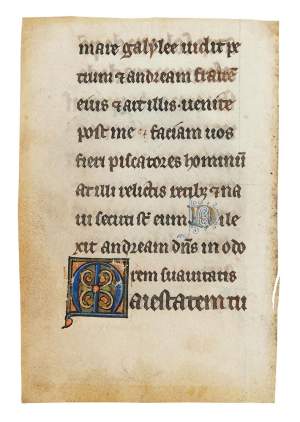 mare galylee uidit pe
trum & andream fratrē
eius & ait illis. uenite
post me & faciam uos
fieri piscatores hominū
at illi relictis retib; & na
ui secuti st̄ eum Dile
xit andream dn̄s in odo
rem suauitatis
Maiestatem tu